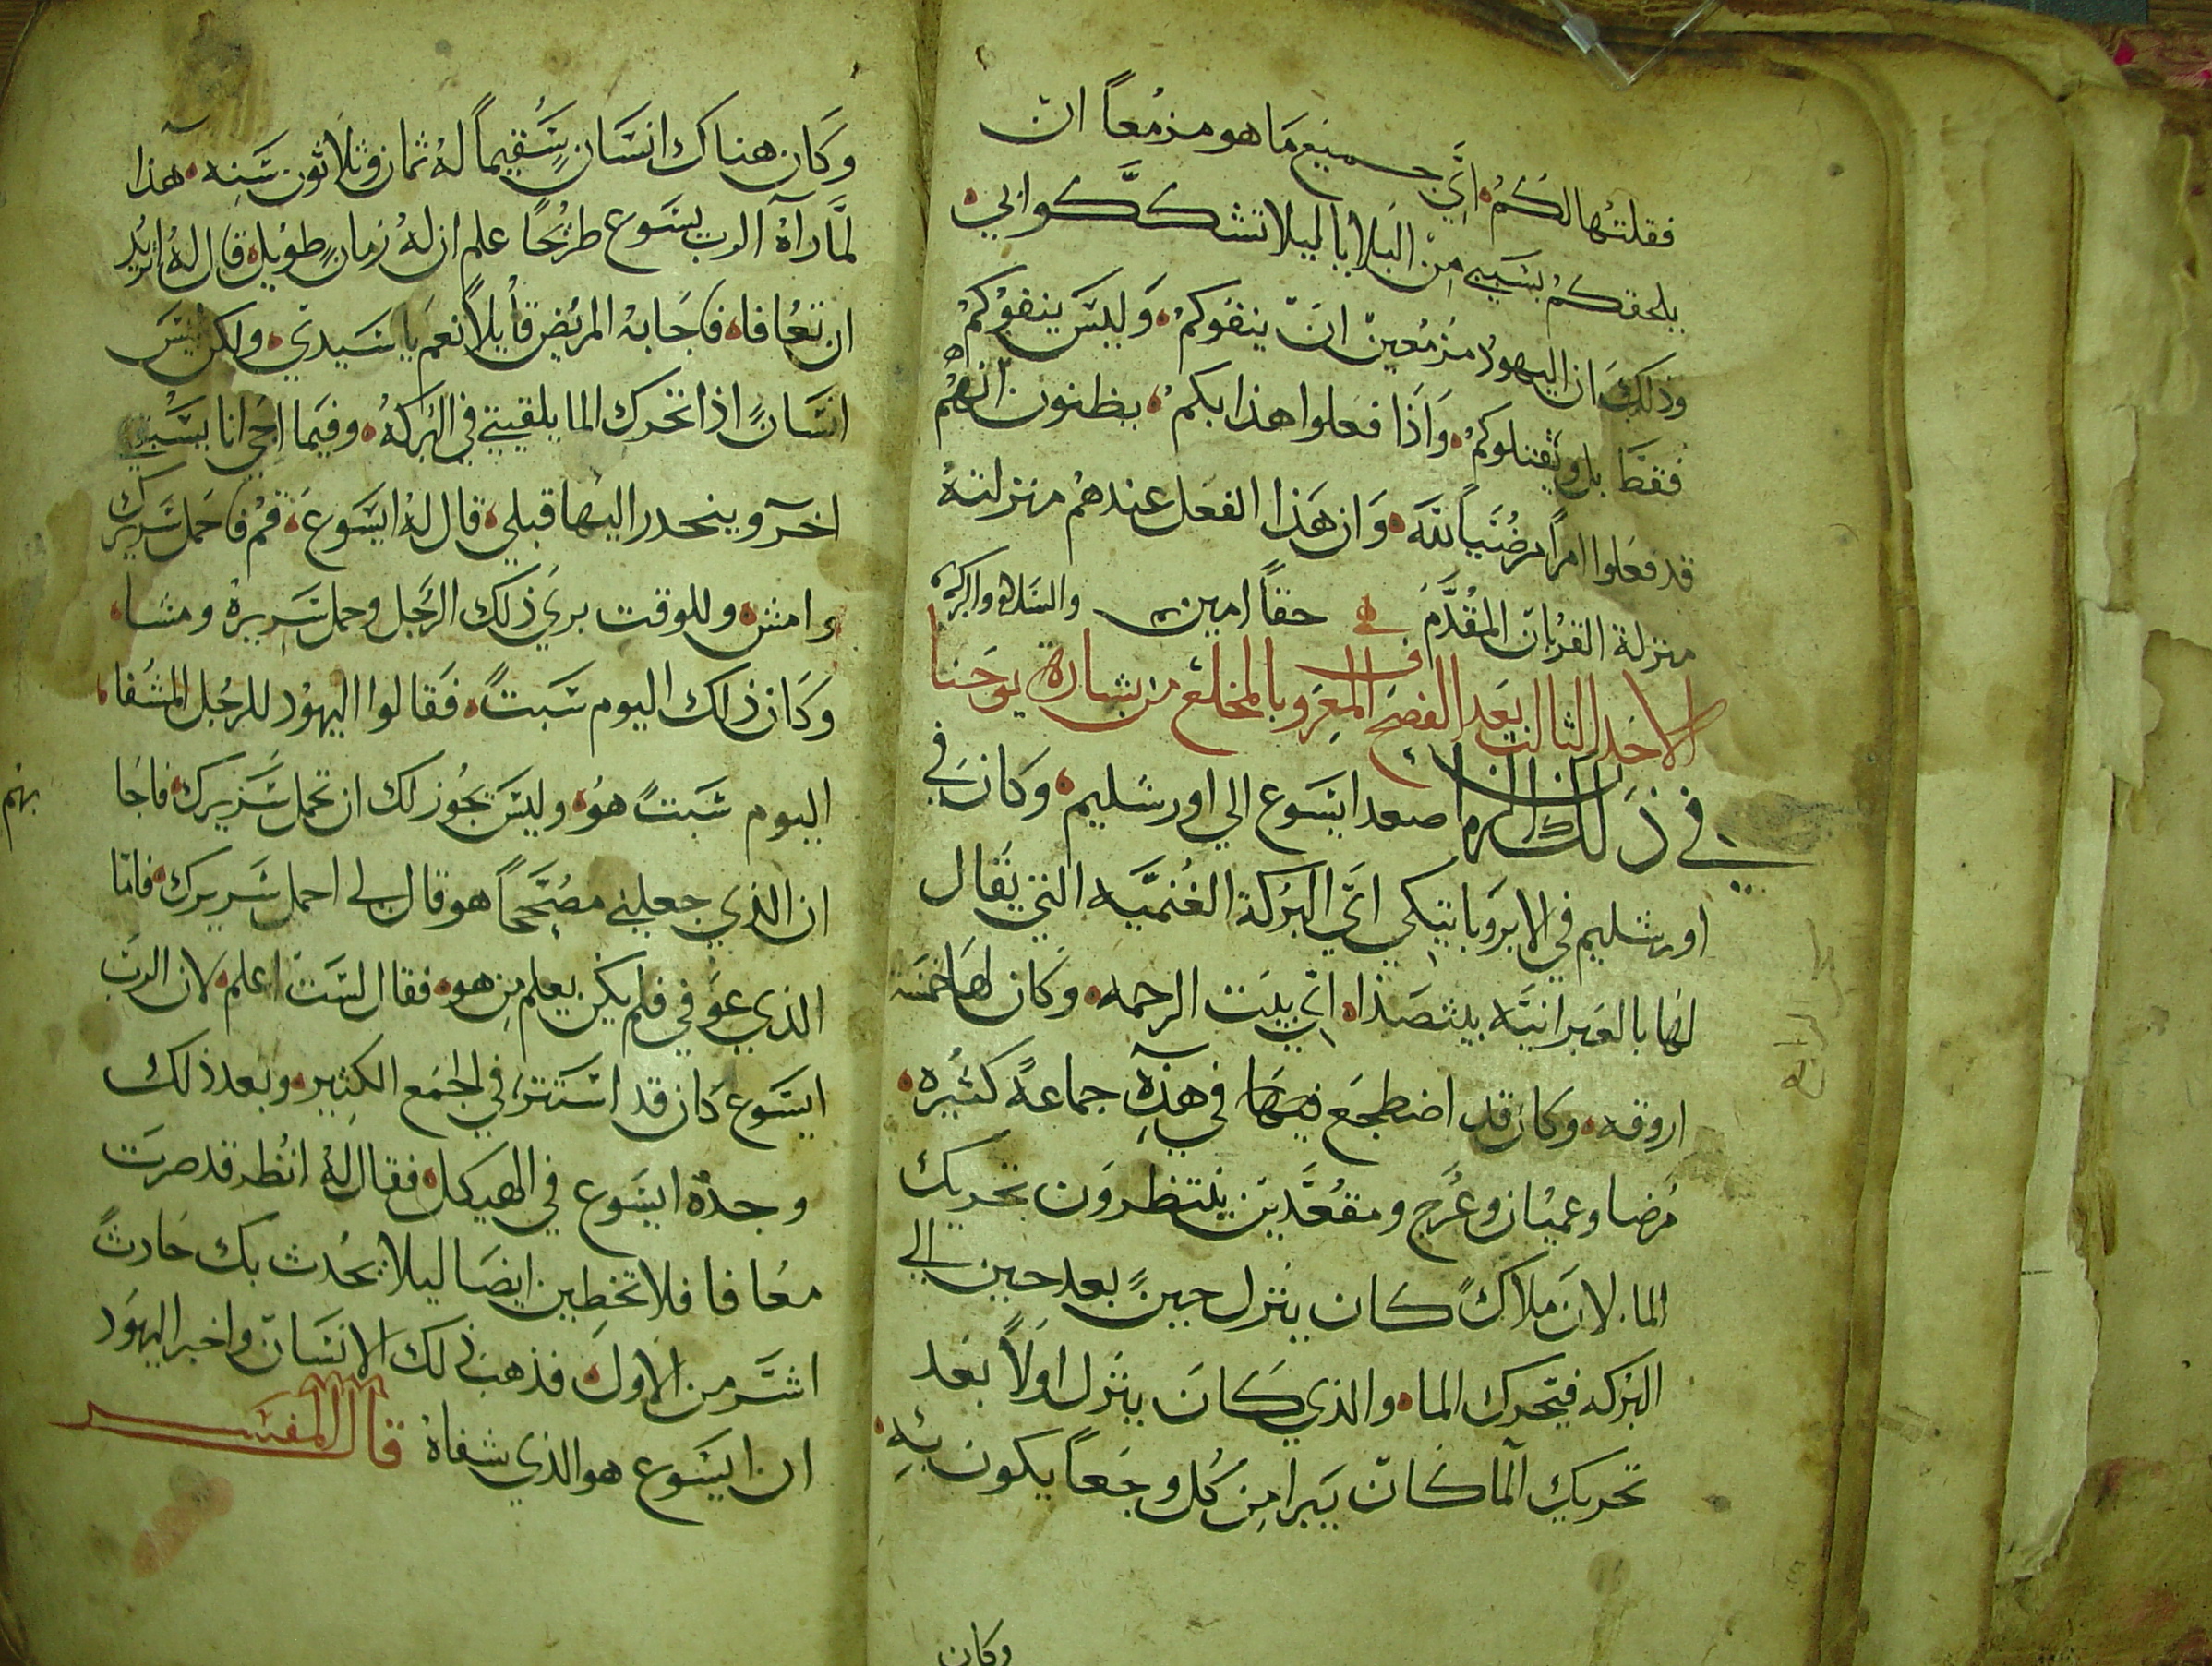 فقلتها لكم اي جميع ما هو مزمعاً ان
يلحقكم بسببي من البلايا ليلا تشككوا بي
وذلك ان اليهود مزمعين ان ينفوكم وليس ينفوكم
فقط بل ويقتلوكم واذا فعلوا هذا بكم يظنون انهم
قد فعلوا امراً مرضياً لله وان هذا الفعل عندهم منزلته
منزلة القربان المقدم حقاً امين والسلام والبركه
الاحد الثالث بعد الفصح المعروف بالمخلع من بشارة يوحنا
في ذلك الزمان صعد ايسوع الي اورشليم وكان في
اورشليم في الابروباتيكي اي البركة الغنميه التي يقال
لها بالعبرانيه بيتصذا اي بيت الرحمه وكان لها خمسة
اروقه وكان قد اضطجع فيها في هذه جماعةً كثيره
مرضا وعميان وعرج ومقعدين ينتظرون تحريك
الما لان ملاكً كان ينزل حينً بعد حين الي
البركه فيتحرك الما والذي كان ينزل اولاً بعد
تحريك الما كان يبرا من كل وجعاً يكون به
وكان
وكان هناك انسان سقيماً له ثمان وثلاثون سنه هذا
لما رآه الرب يسوع طريحاً علم ان له زمانٍ طويل قال له اتريد
ان تعافا فاجابه المريض قايلاً نعم يا سيدي ولكن ليس
انسانٍ اذا تحرك الما يلقيني في البركه وفيما اجي انا يسبقني
اخر وينحدر اليها قبلي قال له ايسوع قم فاحمل سريرك
وامش وللوقت بري ذلك الرجل وحمل سريره ومشا
وكان ذلك اليوم سبتً فقالوا اليهود للرجل المشفا
اليوم سبتً هو وليس يجوز لك ان تحمل سريرك فاجا
بهم
ان الذي جعلني مصححاً هو قال لي احمل سريرك فاما
الذي عوفي فلم يكن يعلم من هو فقال لست اعلم لان الرب
ايسوع كان قد استتر في الجمع الكثير وبعد ذلك
وجده ايسوع في الهيكل فقال له انظر قد صرت
معافا فلا تخطين ايضا ليلا يحدث بك حادثً
اشر من الاول فذهب ذلك الانسان واخبر اليهود
ان ايسوع هو الذي شفاه قال المفسر